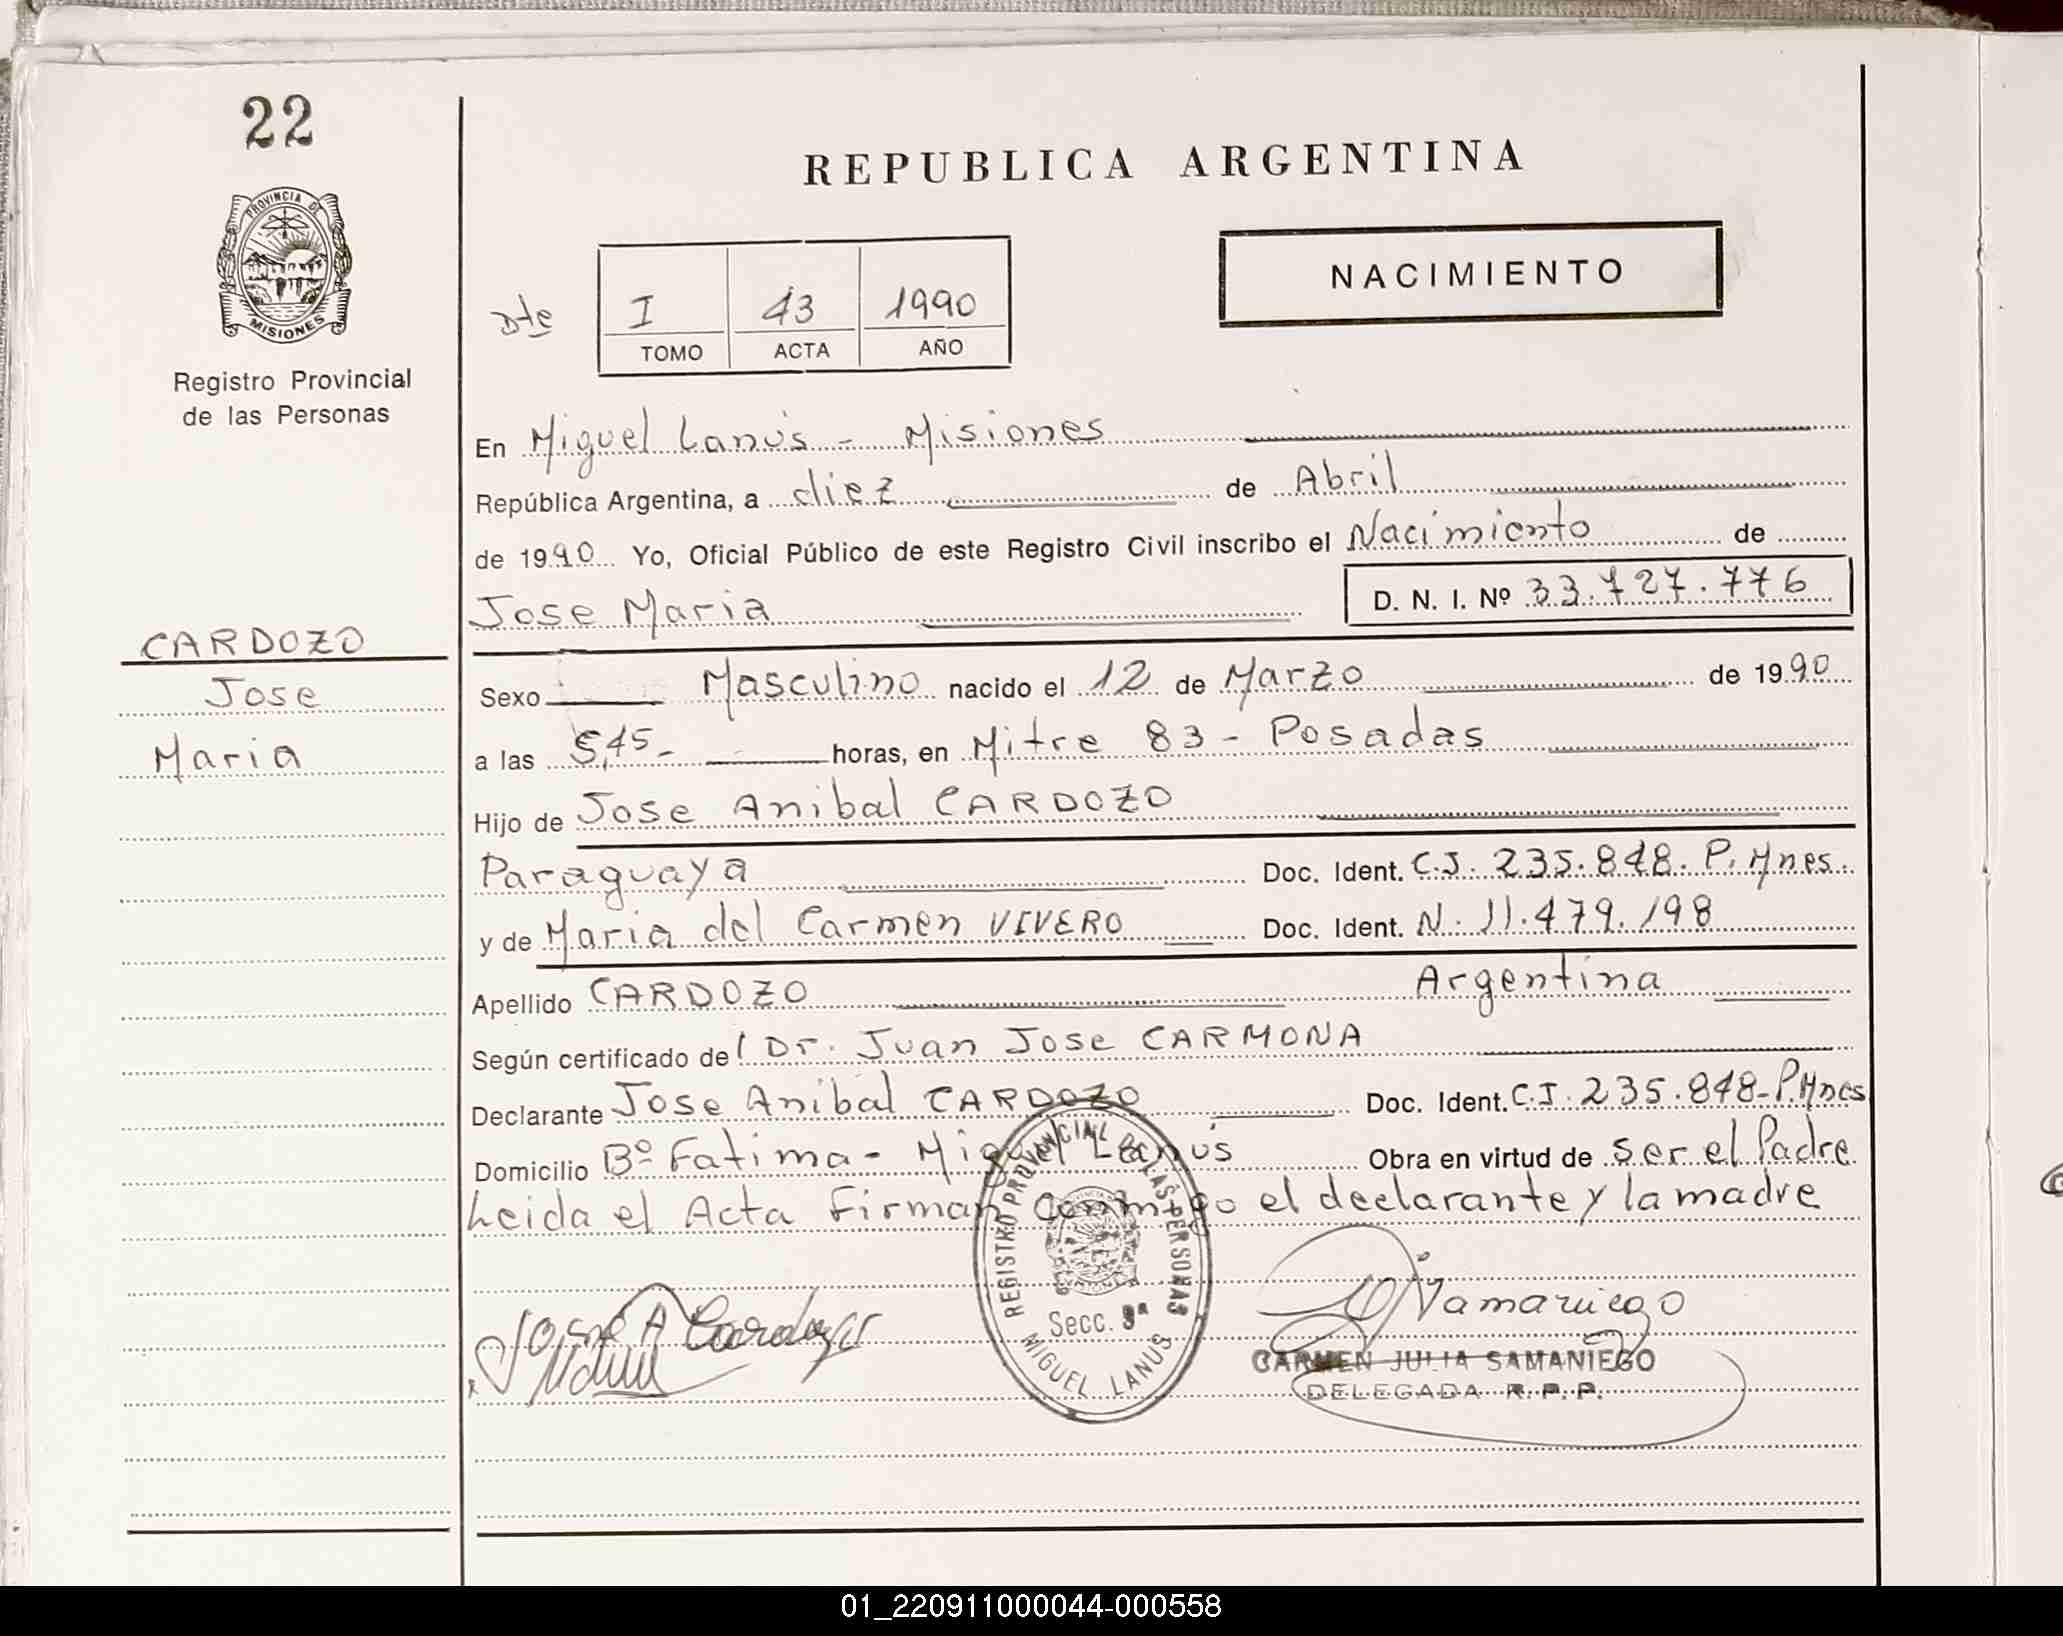 22
PROVINCIA DE
MISIONES
Registro Provincial
de las Personas
CARDOZO
Jose
Maria
REPUBLICA ARGENTINA
NACIMIENTO
Dte
I 43 1990
TOMO ACTA AÑO
En Miguel Lanús - Misiones
República Argentina, a diez de Abril
de 1990 Yo, Oficial Público de este Registro Civil inscribo el Nacimiento de
Jose Maria D. N. I. Nº 33.727.776
Sexo Masculino nacido el 12 de Marzo de 1990
a las 5,45- horas, en Mitre 83 - Posadas
Hijo de Jose Anibal CARDOZO
Paraguaya Doc. Ident. C.I. 235.848. P. Mnes.
y de Maria del Carmen VIVERO Doc. Ident. N. 11.479.198
Apellido CARDOZO Argentina
Según certificado del Dr. Juan Jose CARMONA
Declarante Jose Anibal CARDOZO Doc. Ident. C.I. 235.848-P.Mnes
Domicilio Bº Fatima - Miguel Lanús Obra en virtud de ser el Padre
Leida el Acta Firman conmigo el declarante y la madre
REGISTRO PROVINCIAL DE LAS PERSONAS
Secc. 9ª
MIGUEL LANUS
Jose A Cardozo
Samaniego
CARMEN JULIA SAMANIEGO
DELEGADA R. P. P.
01_220911000044-000558